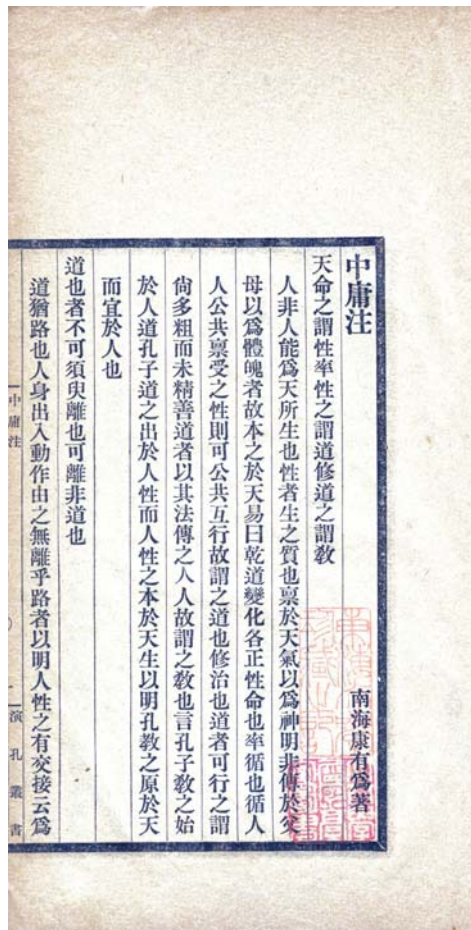 中庸注
南海康有爲著
天命之謂性率性之謂道修道之謂敎
人非人能爲天所生也性者生之質也禀於天氣以爲神明非傳於父
母以爲體魄者故本之於天易曰乾道變化各正性命也率循也循人
人公共禀受之性則可公共互行故謂之道也修治也道者可行之謂
尙多粗而未精善道者以其法傳之人人故謂之敎也言孔子敎之始
於人道孔子道之出於人性而人性之本於天生以明孔敎之原於天
而宜於人也
道也者不可須臾離也可離非道也
道猶路也人身出入動作由之無離乎路者以明人性之有交接云爲
中庸注
演孔叢書